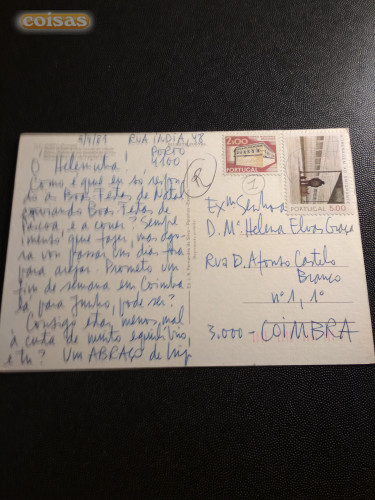 coisas
9/4/81 RUA INDIA, 48
PORTO
4100
Ó Heleninha!
Como é que eu só respondo
às Boas Festas de Natal
enviando Boas Festas de
Páscoa, e a cores? Sempre
imenso que fazer, mas agora
vou passar uns dias fora
para arejar. Prometo um
fim de semana em Coimbra
lá para Junho, pode ser?
Consigo estar menos mal
à custa de muito equilíbrio,
e tu? Um ABRAÇO de
2$00
PORTUGAL
PORTUGAL 5.00
R
1
Exmª Senhora
D. Mª Helena Elvas
Rua D. Afonso Castelo
Branco
nº 1, 1º
3.000 - COIMBRA